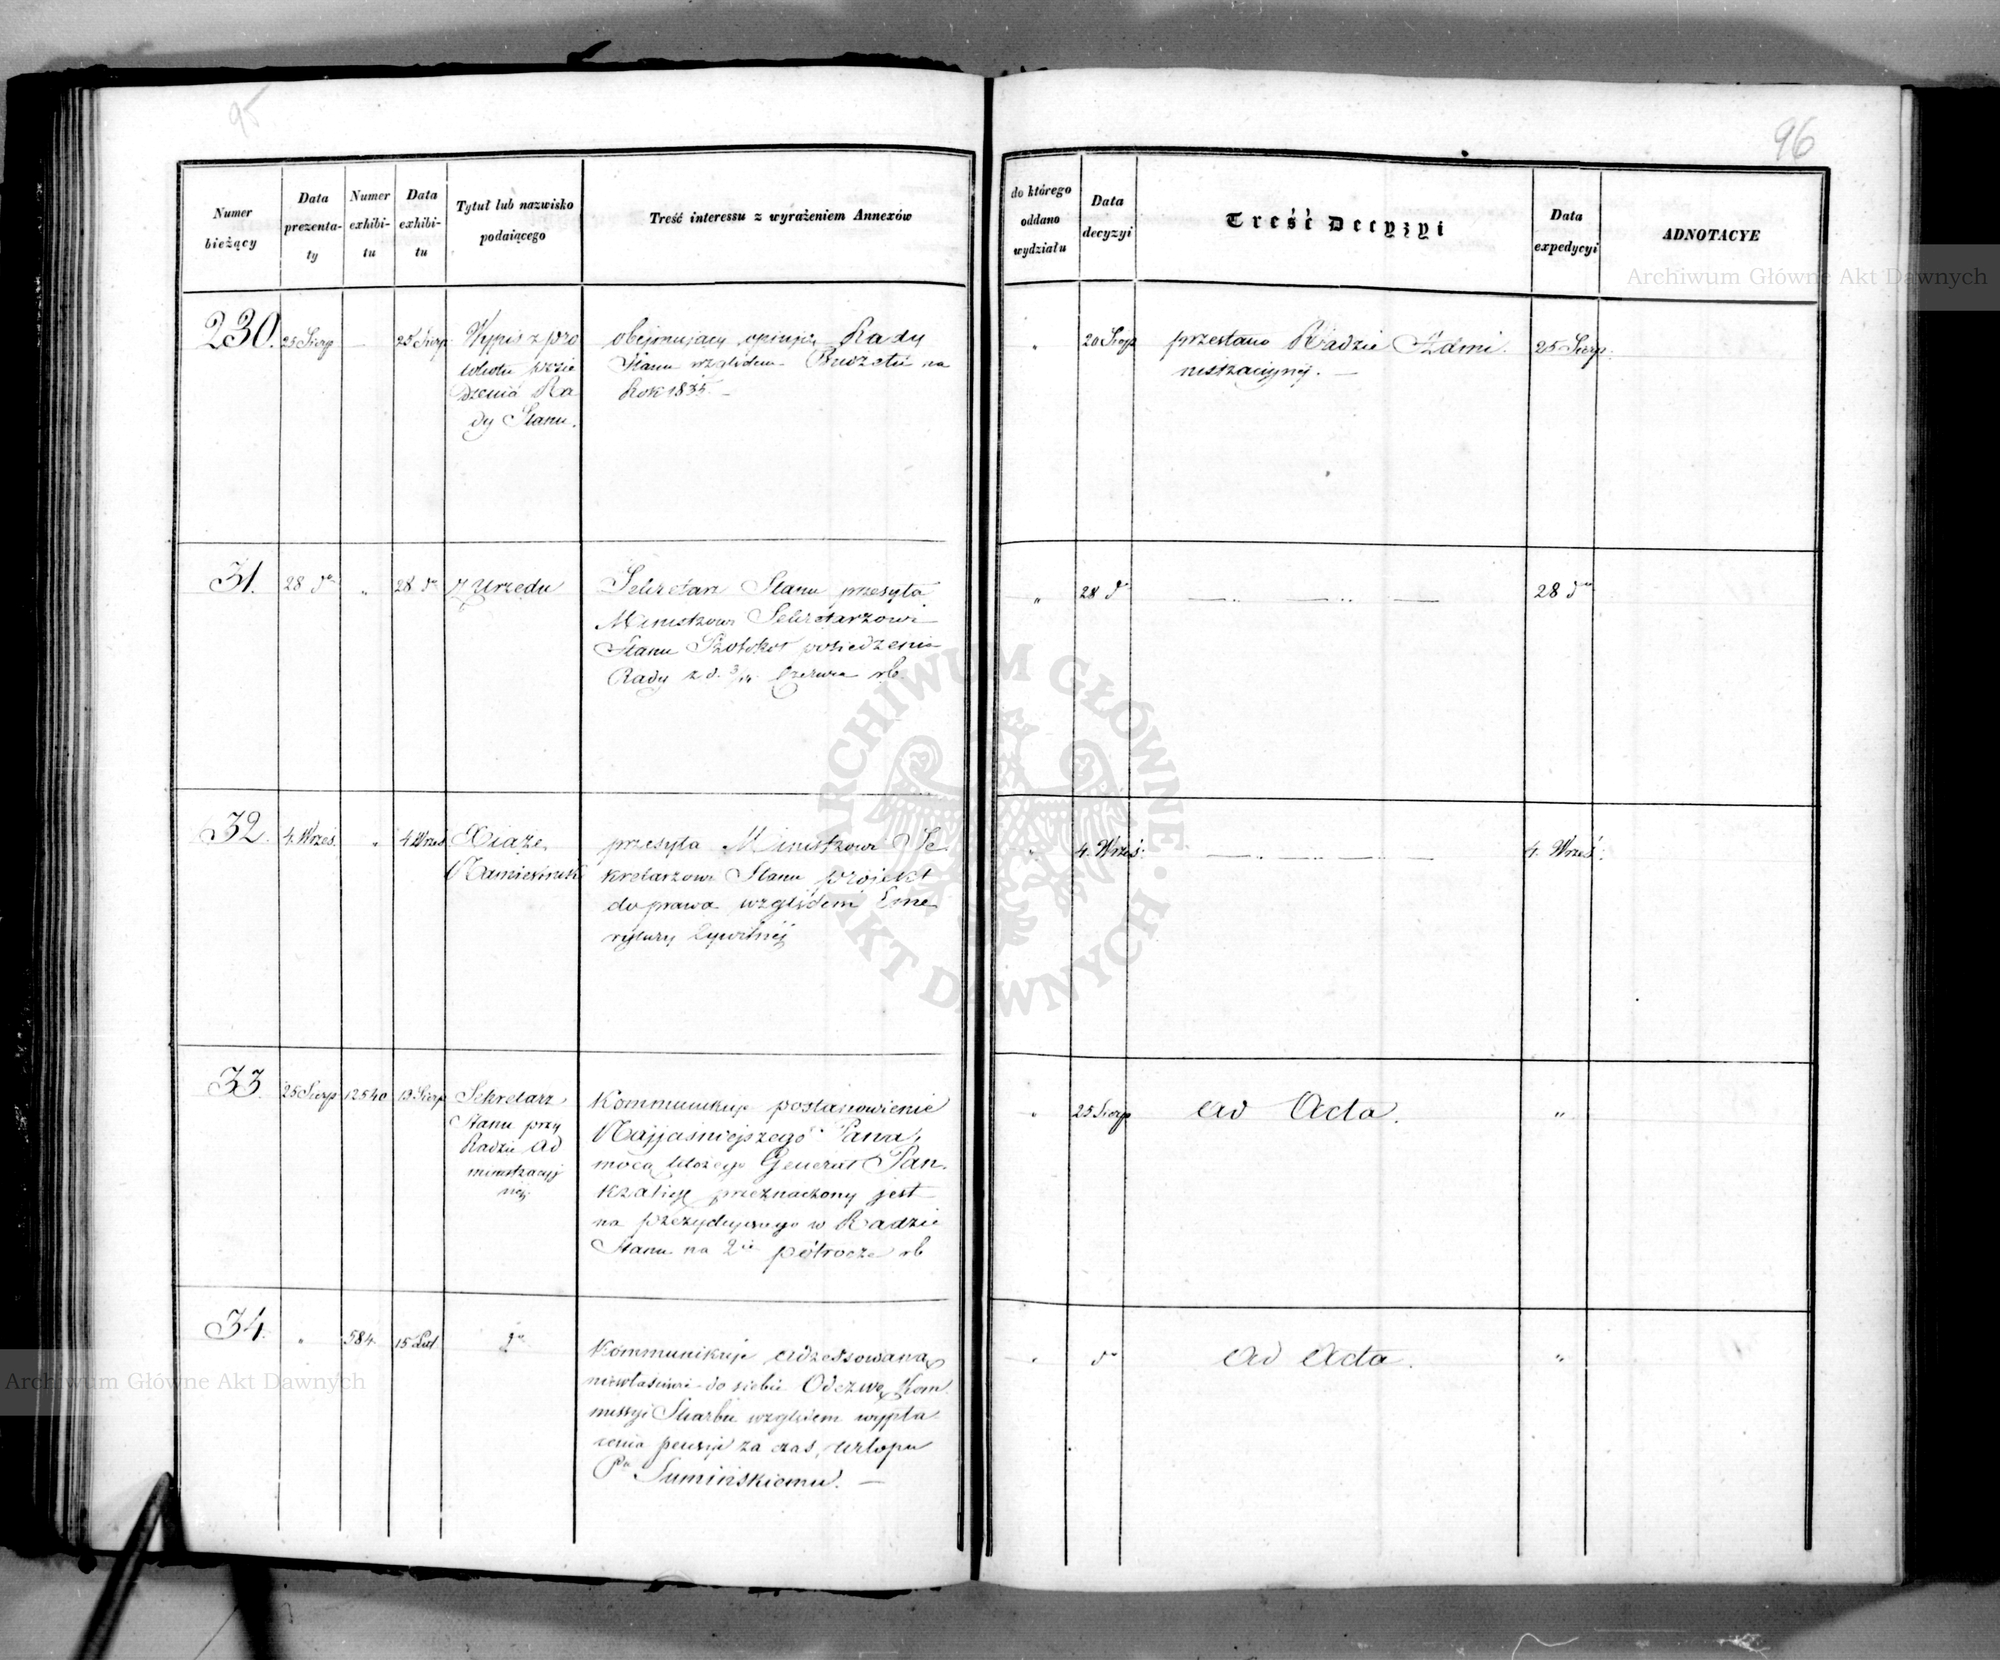 95
96
Numer bieżący
Data prezenta-ty
Numer exhibi-tu
Data exhibi-tu
Tytuł lub nazwisko podaiącego
Treść interessu z wyrażeniem Annexów
do którego oddano wydziału
Data decyzyi
Treść Decyzyi
Data expedycyi
ADNOTACYE
230. 25 Sierp 25 Sierp
Wypis z pro
tokułu posie
dzenia Ra
dy Stanu.
obejmujący opinię Rady
Stanu względem Budżetu na
Rok 1835. —
„ 20 Sierp
przesłano Radzie Admi
nistracyjnej. —
25 Sierp.
31. 28 do „ 28 do z Urzędu
Sekretarz Stanu przesyła
Ministrowi Sekretarzowi
Stanu Protokół posiedzenia
Rady z d. 3/15 Czerwca rb.
„ 28 do
28 do
32. 4 Wrześ. „ 4 Wrześ
Xiąże
przesyła Ministrowi Se
kretarzowi Stanu projekt
do prawa względem Eme
rytury Cywilnej
„ 4. Wrześ.
4. Wrześ.
33. 25 Sierp 12540 13 Sierp
Sekretarz
Stanu przy
Radzie Ad
ministracyj
nej.
Kommunikuje postanowienie
Najjaśniejszego Pana,
mocą którego Generał Pan
kratiew przeznaczony jest
na prezydującego w Radzie
Stanu na 2ie półrocze rb
„ 25 Sierp
Ad Acta.
„
34. „ 584. 15 Lut do
Kommunikuje adressowaną
niewłaściwie do siebie Odezwę Kom
missyi Skarbu względem wypła
cenia pensyi za czas urlopu
Pu Sumińskiemu. —
„ do
Ad Acta.
„
Archiwum Główne Akt Dawnych
Archiwum Główne Akt Dawnych
ARCHIWUM GŁÓWNE AKT DAWNYCH